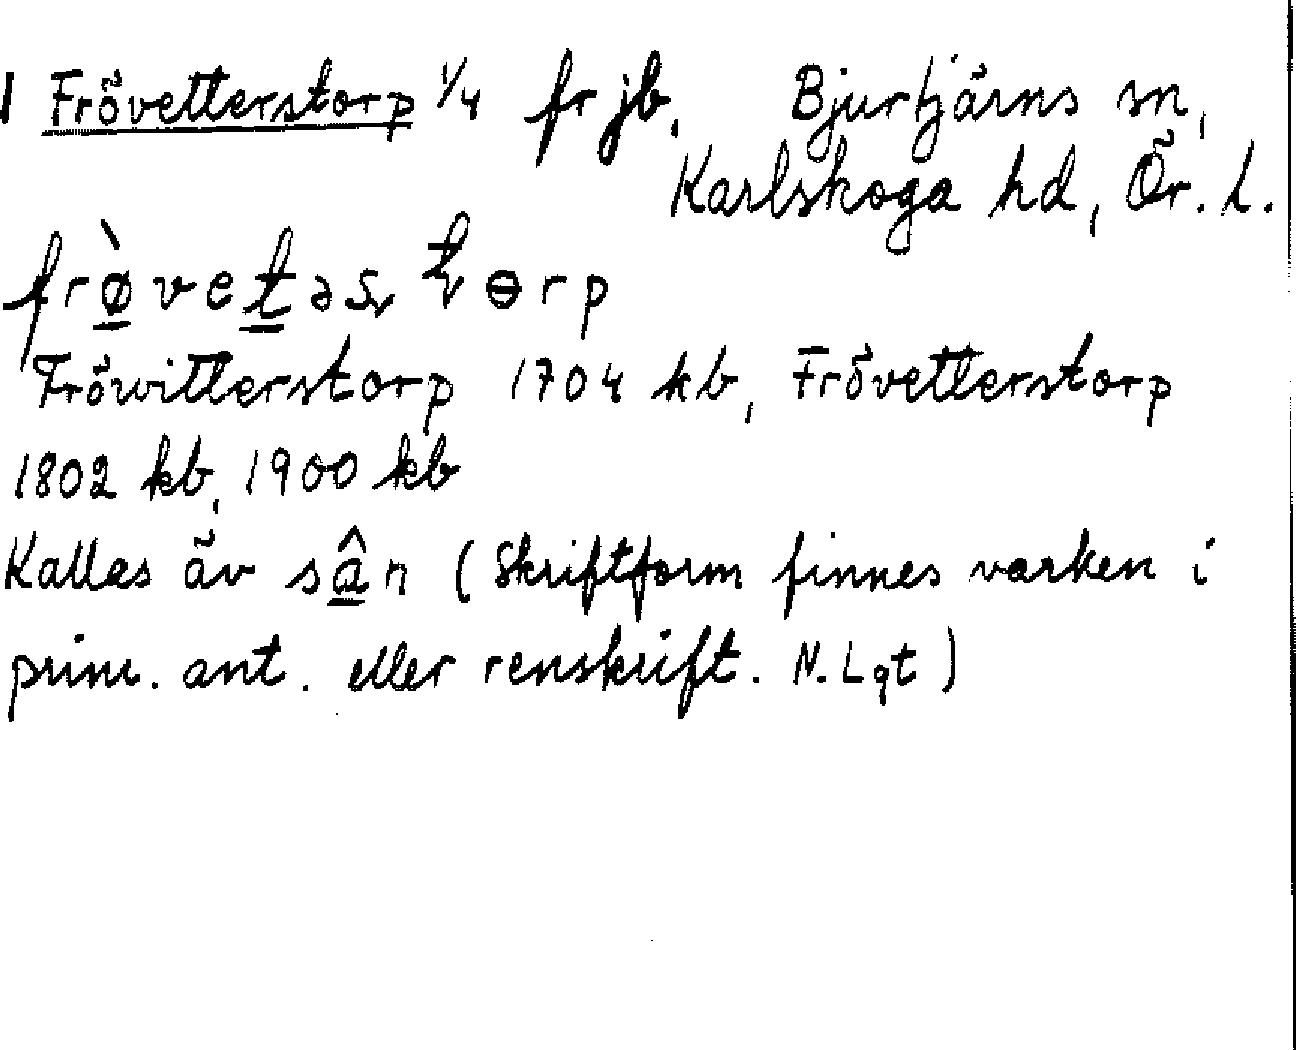 1 Frövetterstorp 1/4 fr jb. Bjurtjärns sn,
Karlskoga hd, Ör. l.
frø̀vetəs torp
Fröwitterstorp 1704 kb, Frövetterstorp
1802 kb, 1900 kb
Kallas äv sân (Skriftform finnes varken i
prim. ant. eller renskrift. N. Lqt)